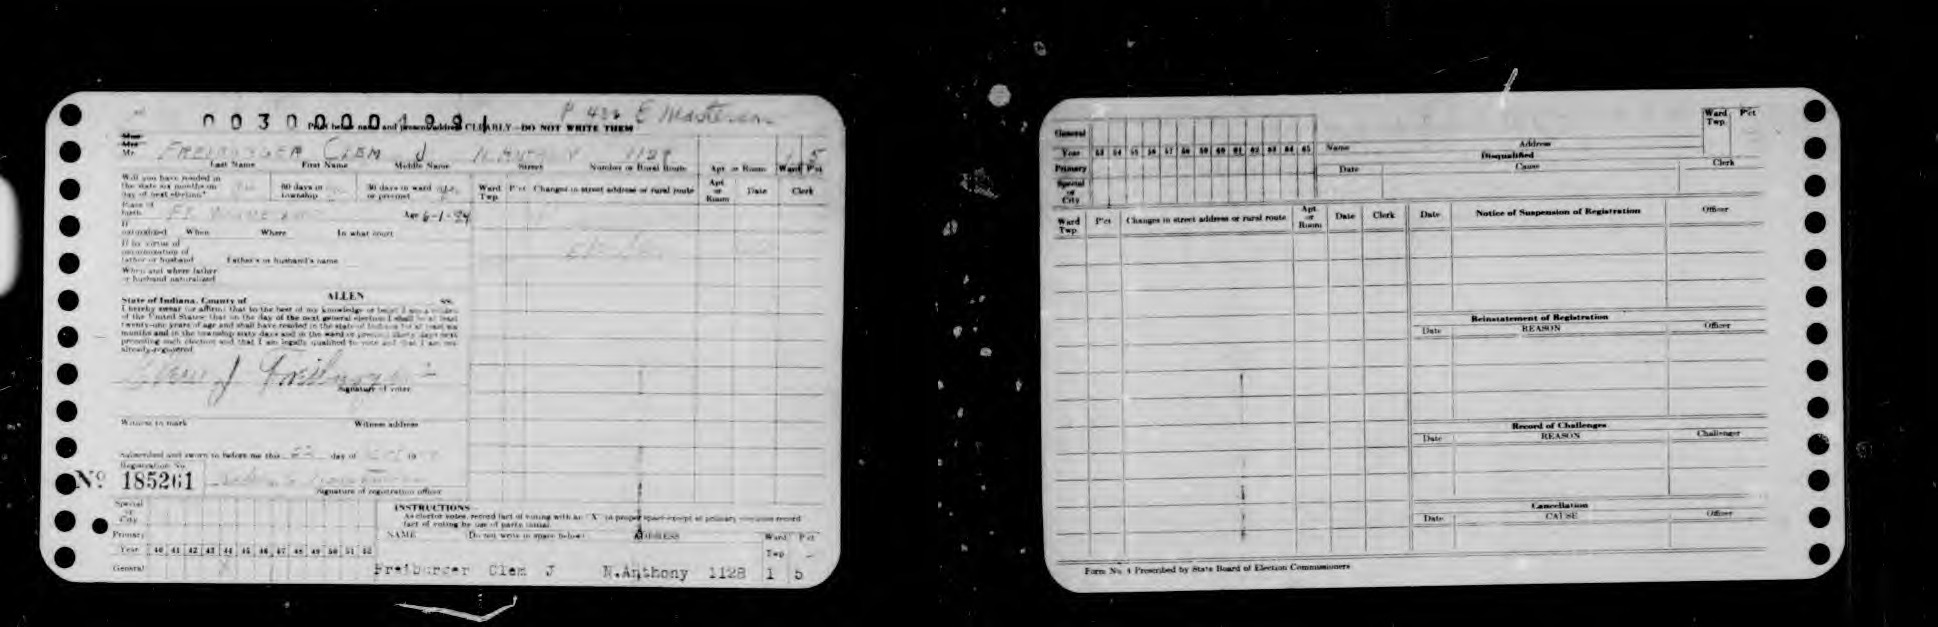 P 432 E Masterson
00300001991
Print below name and present address CLEARLY—DO NOT WRITE THEM
Mr. FREIBURGER CLEM J N. ANTHONY 1128 1 5
Last Name First Name Middle Name Street Number or Rural Route Apt or Room Ward Pct
Will you have resided in
the state six months on
day of next election?
60 days in
township
30 days in ward
or precinct
Ward
Twp.
P'ct Changes in street address or rural route
Apt.
or
Room
Date Clerk
Place of
birth FT. WAYNE IND Age 6-1-94
If
naturalized When Where In what court
If by virtue of
naturalization of
father or husband Father's or husband's name
When and where father
or husband naturalized
State of Indiana, County of ALLEN ss.
I hereby swear (or affirm) that to the best of my knowledge or belief I am a citizen
of the United States; that on the day of the next general election I shall be at least
twenty-one years of age and shall have resided in the state of Indiana for at least six
months and in the township sixty days and in the ward or precinct thirty days next
preceding such election and that I am legally qualified to vote and that I am not
already registered
Clem J Freiburger
Signature of voter
Witness to mark Witness address
Subscribed and sworn to before me this 22 day of 19
Registration No.
Nº 185261
Signature of registration officer
Special
or
City
Primary
Year 40 41 42 43 44 45 46 47 48 49 50 51 52
General X
INSTRUCTIONS—
As elector votes, record fact of voting with an "X" in proper space except at primary election record
fact of voting by use of party initial.
NAME Do not write in space below ADDRESS Ward Twp P'ct
Freiburger Clem J N.Anthony 1128 1 5
General
Year 53 54 55 56 57 58 59 60 61 62 63 64 65
Primary
Special
or
City
Name Address
Ward
Twp.
P'ct
Disqualified
Date Cause Clerk
Ward
Twp.
P'ct Changes in street address or rural route
Apt.
or
Room
Date Clerk
Date Notice of Suspension of Registration Officer
Reinstatement of Registration
Date REASON Officer
Record of Challenges
Date REASON Challenger
Cancellation
Date CAUSE Officer
Form No. 4 Prescribed by State Board of Election Commissioners